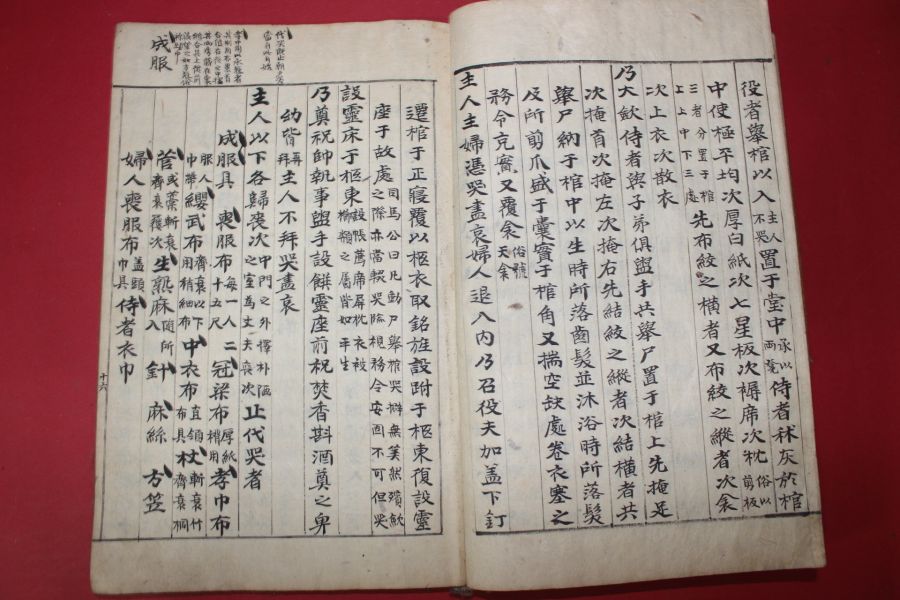 役者舉棺以入主人不哭置于堂中承以兩凳侍者秫灰於棺
中使極平均次厚白紙次七星板次褥席次枕俗以剪板
三者分置于棺上中下三處先布絞之橫者又布絞之縱者次衾
次上衣次散衣
乃大斂侍者與子弟俱盥手共舉尸置于棺上先掩足
次掩首次掩左次掩右先結絞之縱者次結橫者共
舉尸納于棺中以生時所落齒髮並沐浴時所落髮
及所剪爪盛于囊實于棺角又揣空缺處卷衣塞之
務令充實又覆衾俗號天衾
主人主婦憑哭盡哀婦人退入內乃召役夫加盖下釘
遷棺于正寢覆以柩衣取銘旌設跗于柩東復設靈
座于故處司馬公曰凡動尸舉棺哭擗無筭然殯斂之際亦當輟哭臨視務令安固不可但哭
設靈床于柩東設帳薦席屏枕衣被櫛頮之屬皆如平生
乃奠祝帥執事盥手設饌靈座前祝焚香斟酒奠之卑
幼皆再拜主人不拜哭盡哀
主人以下各歸喪次中門之外擇朴陋之室為丈夫喪次止代哭者
成服具 喪服布每一人二十五尺冠梁布厚紙稍用孝巾布
服人中帶纓武布齊衰以下用稍細布中衣布直領布具杖齊衰竹桐
菅或藁斬衰齊衰履次生熟麻隨所入針 麻絲 方笠
婦人喪服布盖頭巾具侍者衣巾
成服
十六